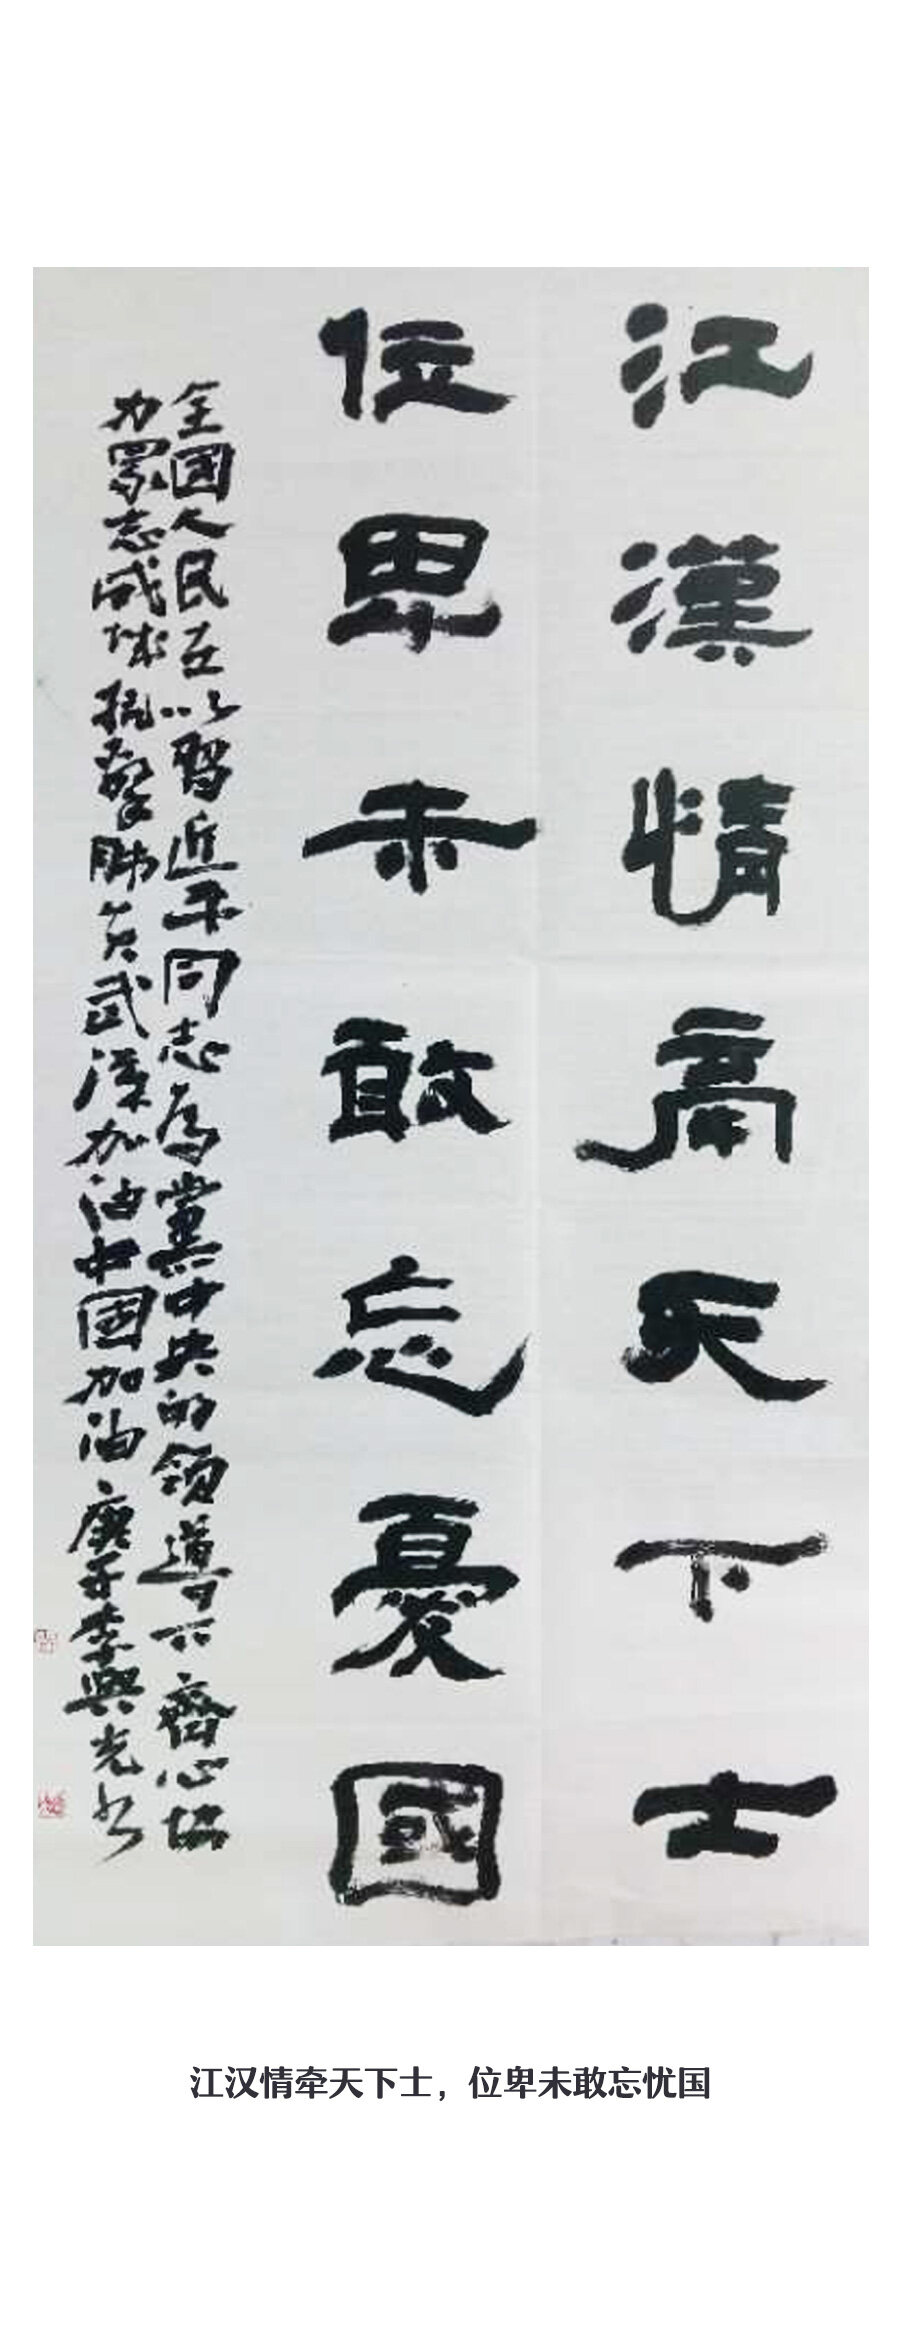 江漢情𤛓天下士
位卑未敢忘憂國
全國人民在以習近平同志為黨中央的領導下齊心協
力眾志成城抗擊肺炎武漢加油中國加油庚子李興光书
江汉情牵天下士，位卑未敢忘忧国